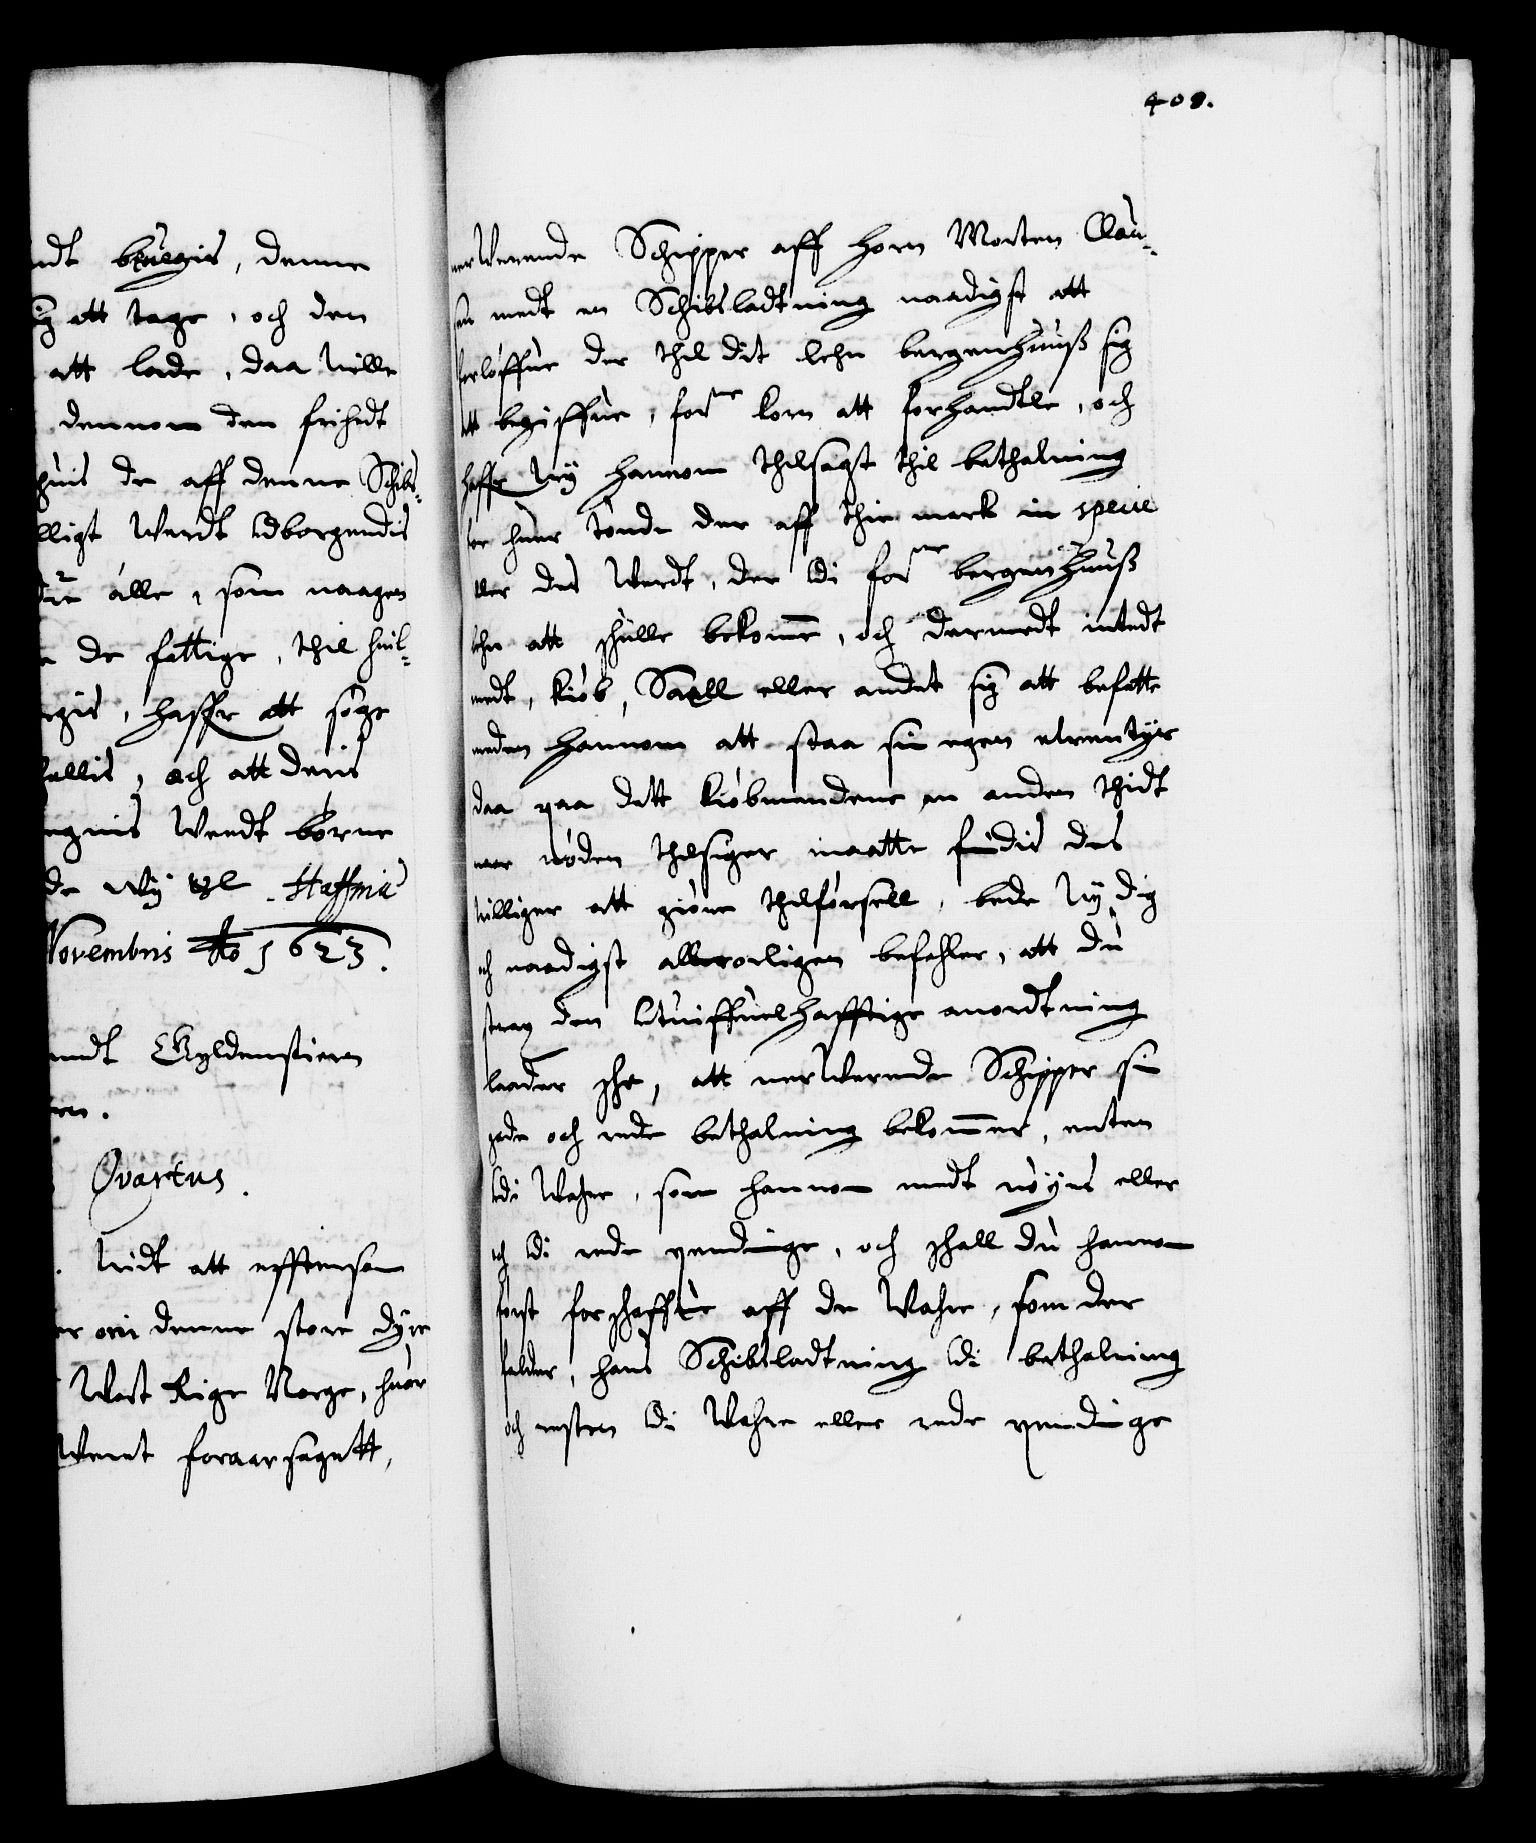 ndt bruegis, denne
sig att tage, och den
att lade, daa wille
dennom den frihedt
huis de aff denne Schibs-
lligt Werdt Udborgendis
alle, som naagen
de fattige, thil huil-
egis, haffe att søge
fallis, och att deris
ignis Werdt børne
de wij &c. Haffniæ
Novembris Ao 1623.
endt Gyldenstiern
rn.
Qvartus.
Widt att efftersom
er om denne store dyre
Wort Rige Norge, huor
Werit foraarsagett,
408.
nerWerende Schipper aff horn Morten Clau-
sen medt en Schibsladtning naadigst att
forløffue der thil dit lehn bergenhuuß sig
att begiffue, forne korn att forhandle, och
haffe Wij hannom thilsagt thil bethalning
for huer tønde der aff thie mark in specie
eller des Werdt, der Udi forne bergenhuuß
lehn att schulle bekomme, och dermedt intedt
medt, kiøb, Saall eller andet sig att befatte
meden hannom att staa sin egen eluentyr
daa paa dett kiøbmendene en anden thidt
naar nøden thilsiger maatte findis des
Willigere att giøre thilførsell, bede Wij dig
och naadigst alluorligen befahler, att du
strax den Utuiffuelhafftige anordtning
laader sche, att nerWerende Schipper sin
gode och rede bethalning bekommer, enten
Udi Wahre, som hannom medt nøyes eller
och Udi rede pendinge, och schall du hannom
først forschaffue aff de Wahre, som der
falder, hans Schibsladtning Udi bethalning
och resten Udi Wahre eller rede pendinge